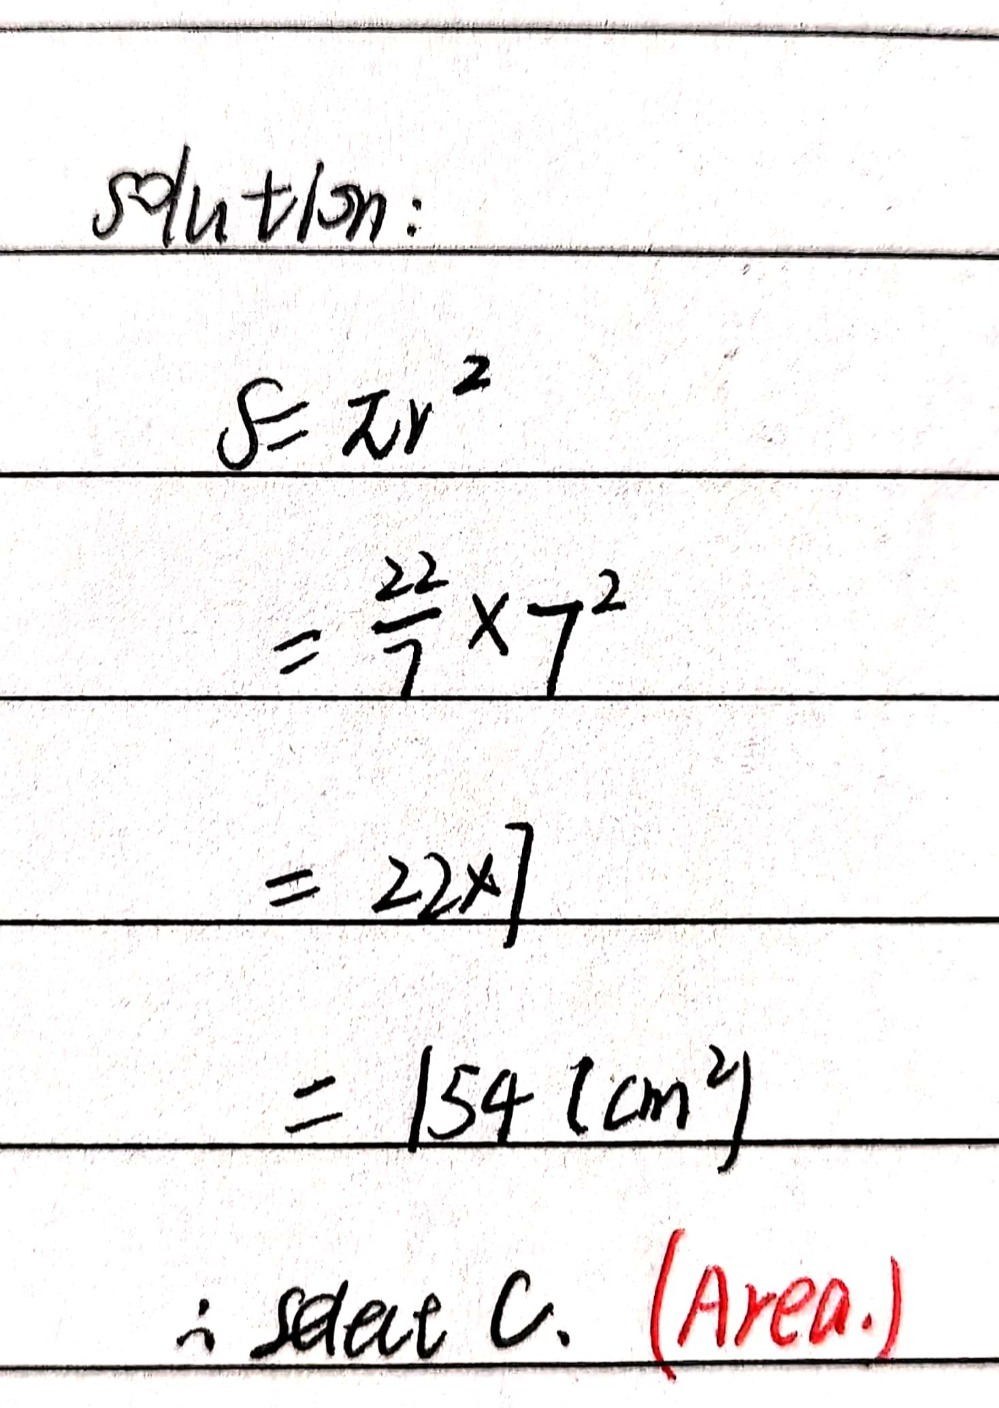 solution:
S = πr²
= 22/7 × 7²
= 22×7
= 154 (cm²)
∴ select C. (Area.)